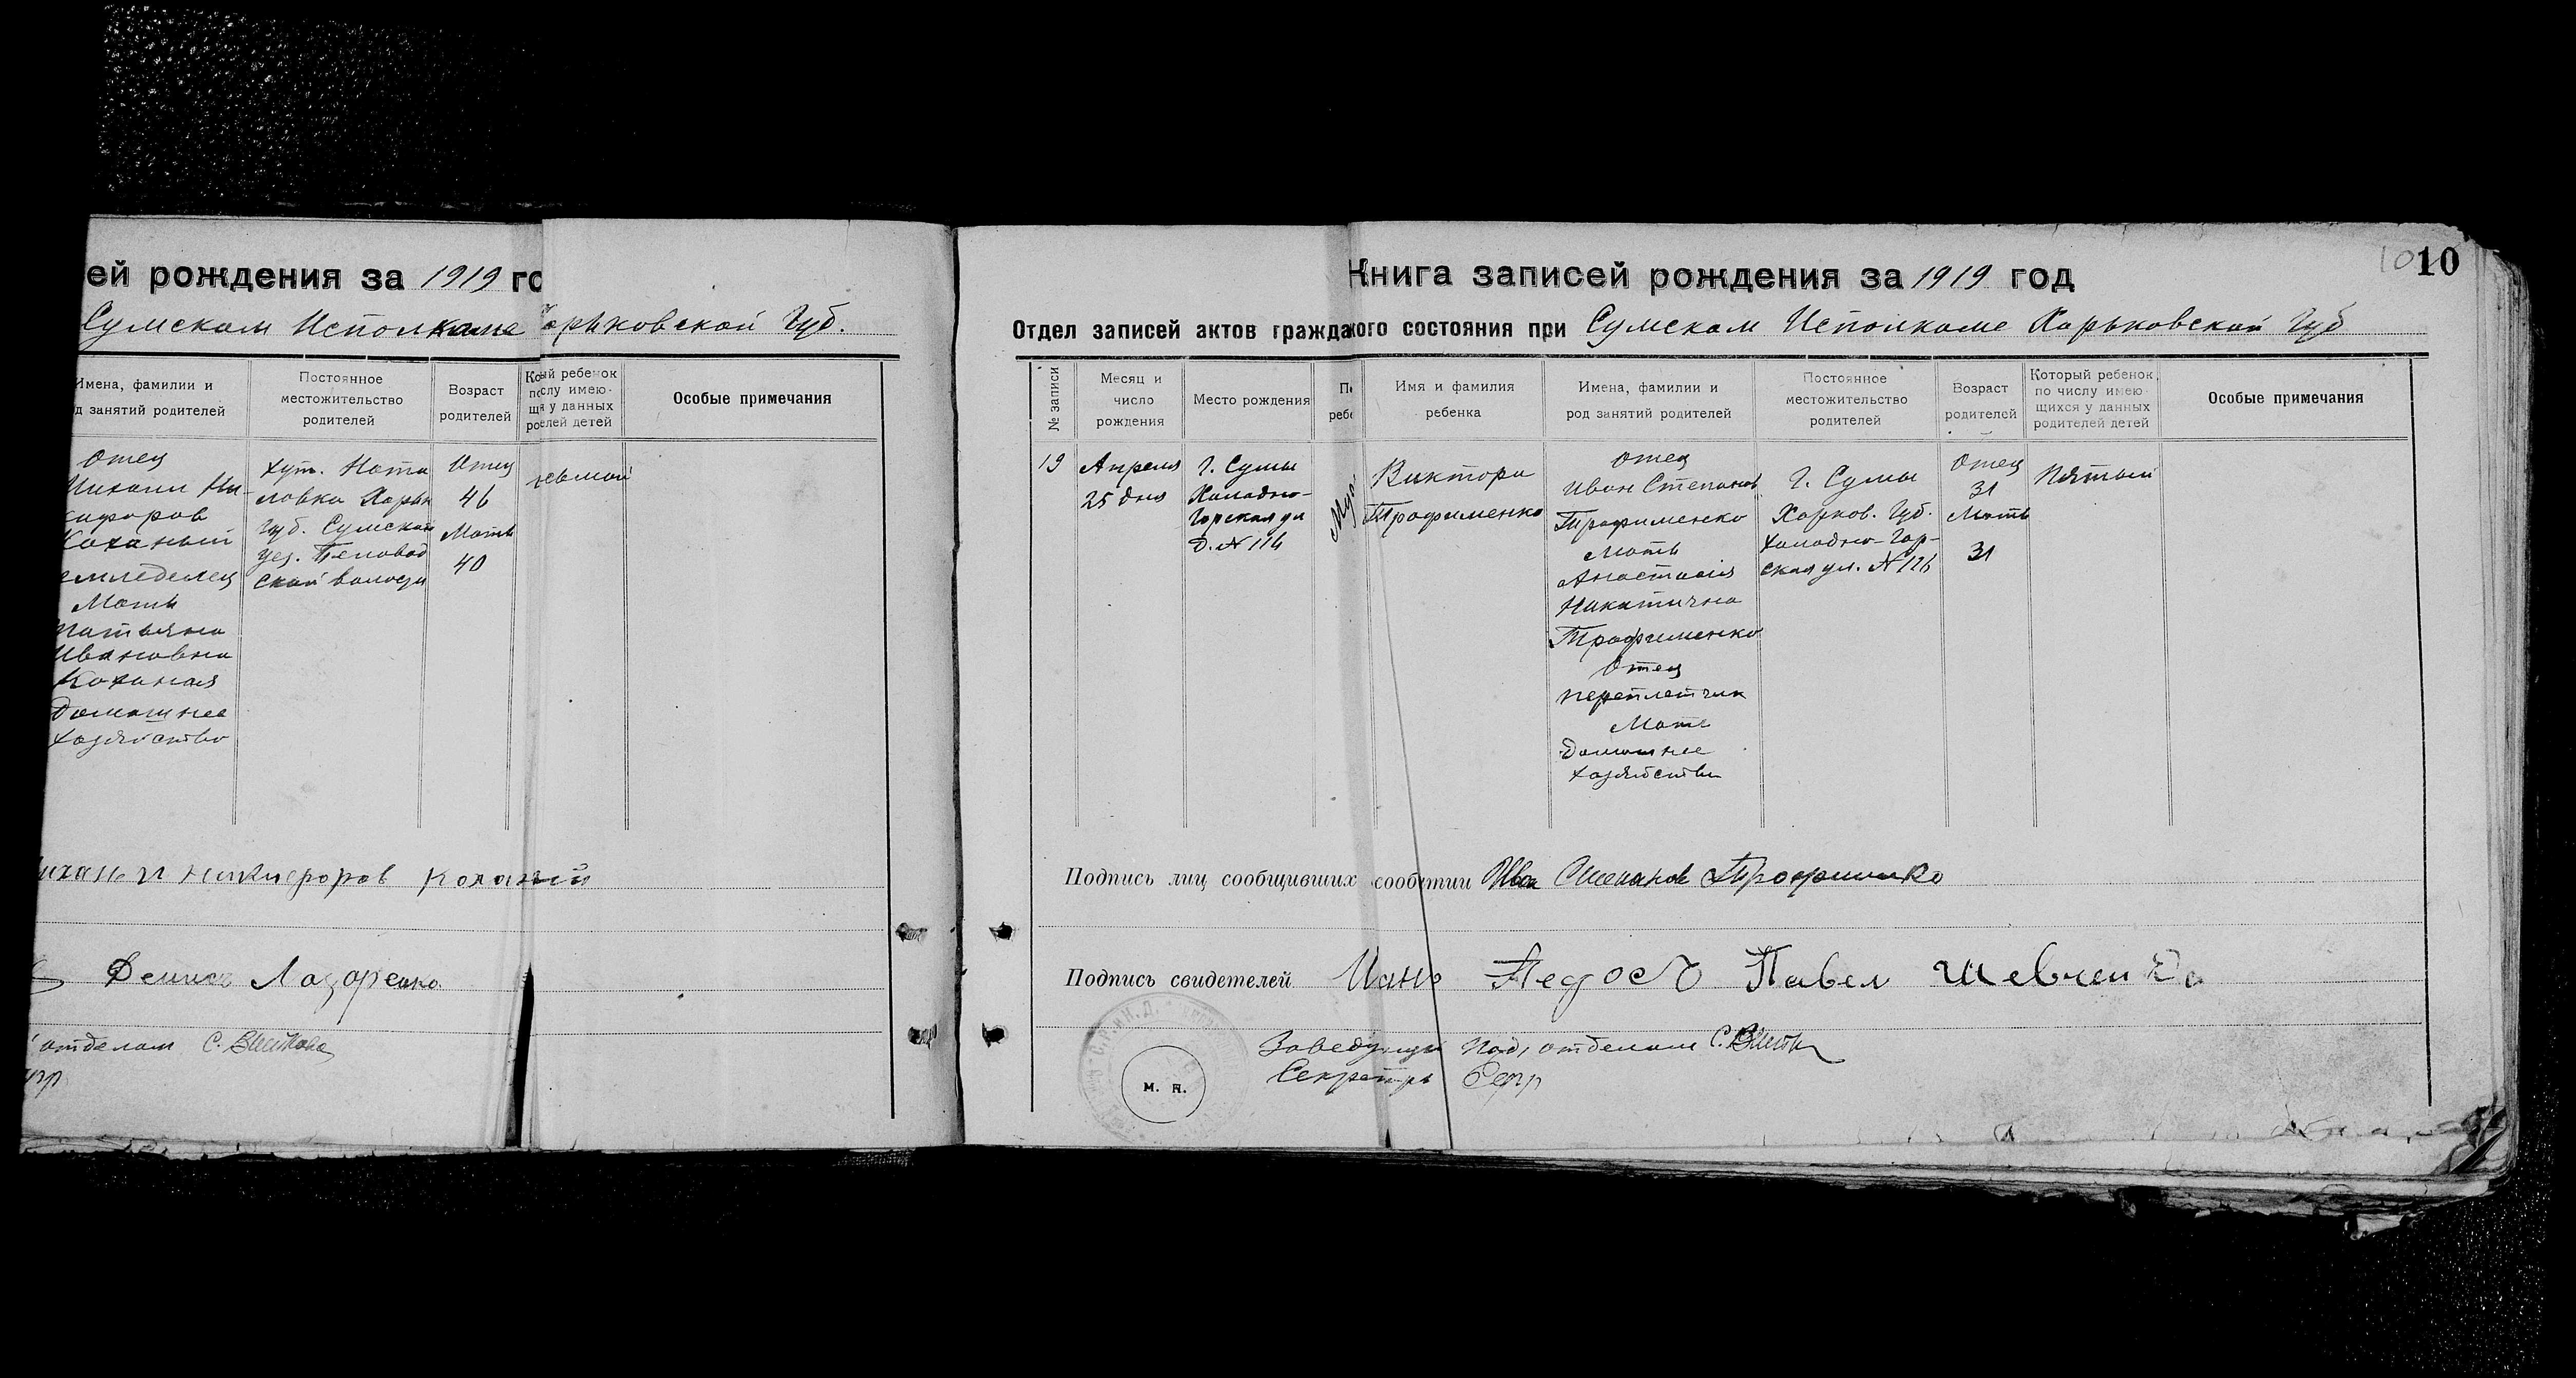 ей рождения за 1919 го
Сумском Исполкоме Харьковской Губ.
Имена, фамилии и
д занятий родителей
Постоянное
местожительство
родителей
Возраст
родителей
Ко ый ребенок
по слу имею-
щ я у данных
ро елей детей
Особые примечания
Отец
Михаил Ни-
кифоров
Коханый
емледелец
Мать
Татьяна
Ивановна
Коханая
Домашнее
хозяйство
хут. Ната
ловка Харьк
Губ. Сумской
уез.
ской волости
Отец
46
Мать
40
осьмой
Михаил Никифоров Коханый
Демис Лазоренко
отделом С.
Книга записей рождения за 1919 год
10 10
Отдел записей актов гражда кого состояния при Сумском Исполкоме Харьковской Губ
№ записи
Месяц и
число
рождения
Место рождения
По
ребе
Имя и фамилия
ребенка
Имена, фамилии и
род занятий родителей
Постоянное
местожительство
родителей
Возраст
родителей
Который ребенок
по числу имею-
щихся у данных
родителей детей
Особые примечания
19
Апреля
25 дня
Г. Сумы
Холодно-
Горская ул
Д. № 116
Муж
Виктора
Трофименко
Отец
Иван Степанов
Трофименко
Мать
Анастасия
Никитична
Трофименко
Отец
переплетчик
Мать
Домашнее
хозяйство
Г. Сумы
Харков. Губ.
Холодно-Гор-
ская ул. № 116
Отец
31
Мать
31
Пятый
Подпись лиц сообщивших о событии Иван Степанов Трофименко
Подпись свидетелей Павел Шевченко
Заведующий Под, отделом С.
Секретарь
М. П.